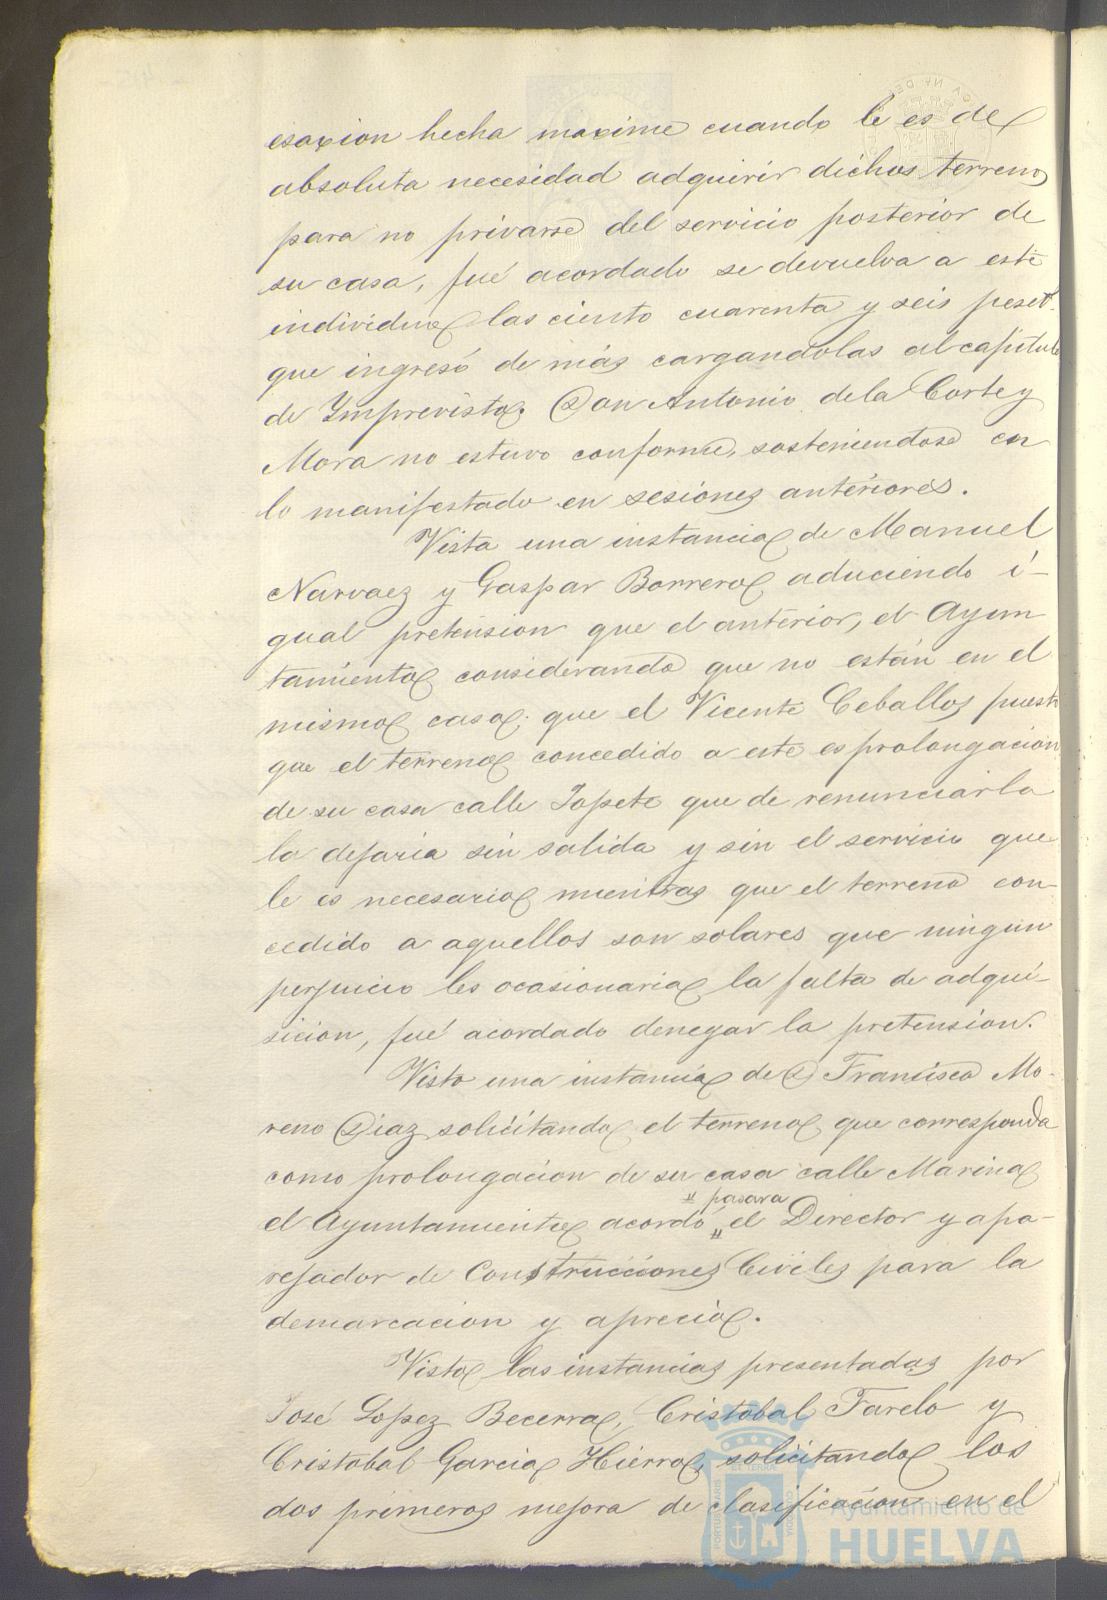 esacion hecha maxime cuando le es de
absoluta necesidad adquirir dichos terrenos
para no privarse del servicio posterior de
su casa, fué acordado se devuelva a este
individuo las ciento cuarenta y seis peset.
que ingresó de más cargandolas al capitulo
de Imprevisto. Don Antonio de la Corte y
Mora no estuvo conforme, sosteniendose en
lo manifestado en sesiones anteriores.
Vista una instancia de Manuel
Narvaez y Gaspar Borrero aduciendo i-
gual pretension que el anterior, el Ayun
tamiento considerando que no están en el
mismo caso que el Vicente Ceballos puesto
que el terreno concedido a este es prolongacion
de su casa calle Topete que de renunciarla
la dejaria sin salida y sin el servicio que
le es necesario mientras que el terreno con-
cedido a aquellos son solares que ningun
perjuicio les ocasionaria la falta de adqui-
sicion, fué acordado denegar la pretension.
Visto una instancia de D Francisco Mo-
reno Diaz solicitando el terreno que corresponda
como prolongacion de su casa calle Marina
" pasara
el Ayuntamiento acordó " el Director y apa-
rejador de Construcciones Civiles para la
demarcacion y aprecio.
Visto las instancias presentadas por
José Lopez Becerra, Cristobal Farelo y
Cristobal Garcia Hierro, solicitando los
dos primeros mejora de clasificacion en el
Ayuntamiento de
HUELVA